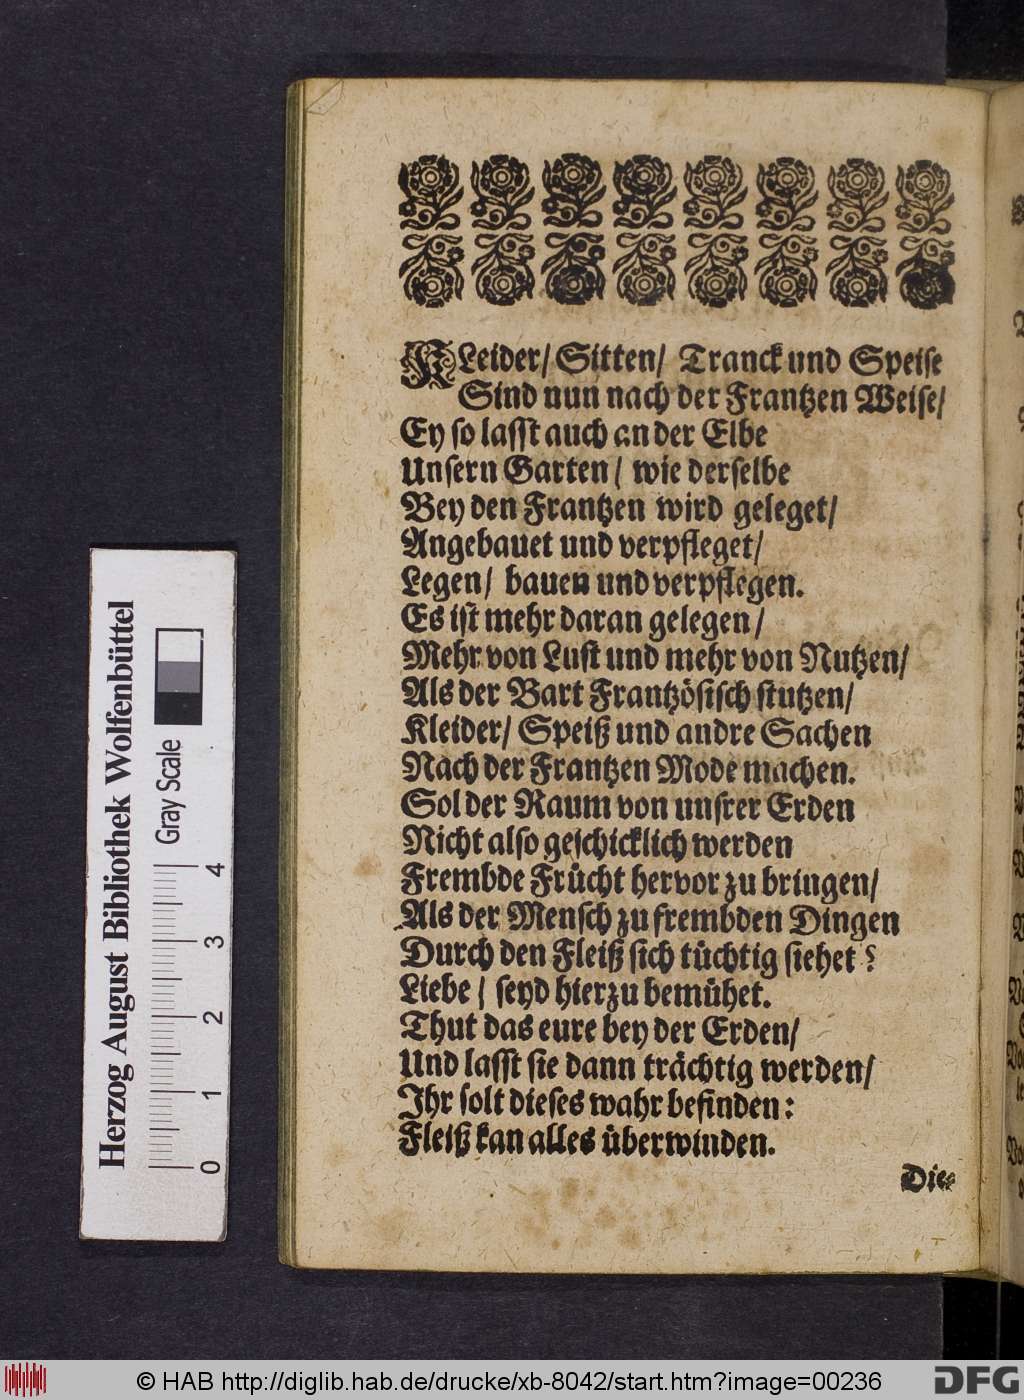 KLeider/ Sitten/ Tranck und Speise
Sind nun nach der Frantzen Weise/
Ey so lasst auch an der Elbe
Unsern Garten/ wie derselbe
Bey den Frantzen wird geleget/
Angebauet und verpfleget/
Legen/ bauen und verpflegen.
Es ist mehr daran gelegen/
Mehr von Lust und mehr von Nutzen/
Als der Bart Frantzösisch stutzen/
Kleider/ Speiß und andre Sachen
Nach der Frantzen Mode machen.
Sol der Raum von unsrer Erden
Nicht also geschicklich werden
Frembde Frücht hervor zu bringen/
Als der Mensch zu frembden Dingen
Durch den Fleiß sich tüchtig siehet?
Liebe/ seyd hierzu bemühet.
Thut das eure bey der Erden/
Und lasst sie dann trächtig werden/
Ihr solt dieses wahr befinden:
Fleiß kan alles überwinden.
Die
Herzog August Bibliothek Wolfenbüttel
Gray Scale
0 1 2 3 4
© HAB http://diglib.hab.de/drucke/xb-8042/start.htm?image=00236
DFG